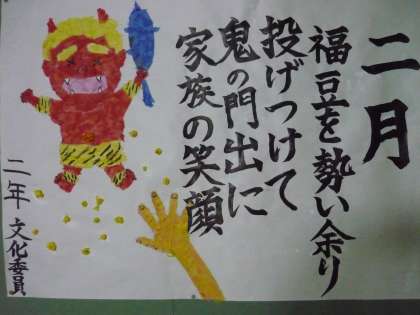 二月
福豆を勢い余り
投げつけて
鬼の門出に
家族の笑顔
二年 文化委員